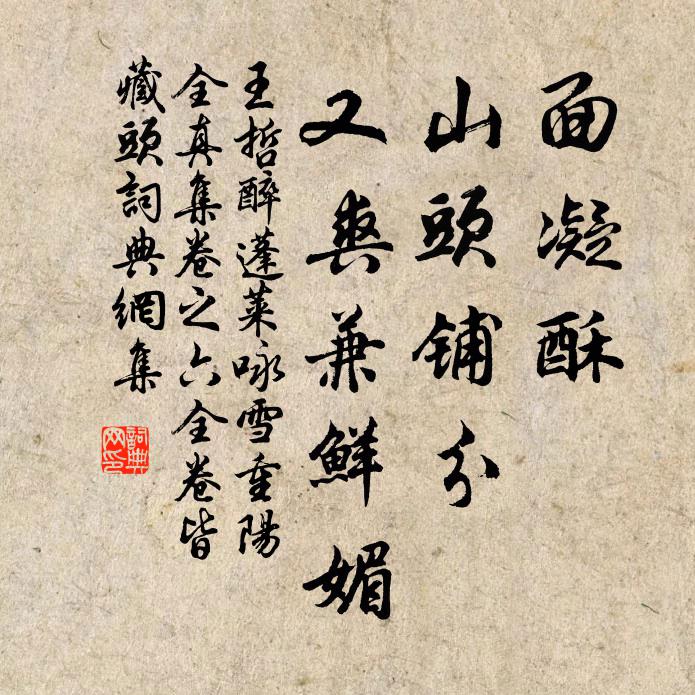 面凝酥
山頭铺分
又爽兼鮮媚
王哲醉蓬莱咏雪重陽
全真集卷之六全卷皆
藏頭詞典網集
詞典
网印